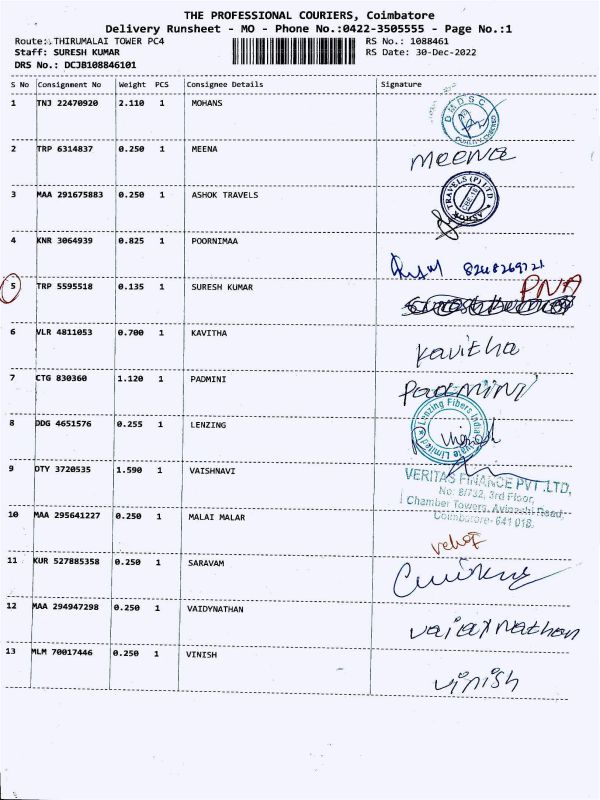 THE PROFESSIONAL COURIERS, Coimbatore
Delivery Runsheet - MO - Phone No.:0422-3505555 - Page No.:1
Route: THIRUMALAI TOWER PC4 RS No.: 1088461
Staff: SURESH KUMAR RS Date: 30-Dec-2022
DRS No.: DCJB108846101
S No Consignment No Weight PCS Consignee Details Signature
1 TNJ 22470920 2.110 1 MOHANS
DMDSC
2 TRP 6314837 0.250 1 MEENA
meena
3 MAA 291675883 0.250 1 ASHOK TRAVELS
ASHOK TRAVELS (P) LTD
CBE-18
4 KNR 3064939 0.825 1 POORNIMAA
8248269721
5 TRP 5595518 0.135 1 SURESH KUMAR
PNA
6 VLR 4811053 0.700 1 KAVITHA
kavitha
7 CTG 830360 1.120 1 PADMINI
Padmini
8 DDG 4651576 0.255 1 LENZING
Lenzing Fibers India Private Limited
9 OTY 3720535 1.590 1 VAISHNAVI
VERITAS FINANCE PVT .LTD,
No: 8/732, 3rd Floor,
Chamber Towers, Avinashi Road,
Coimbatore- 641 018.
10 MAA 295641227 0.250 1 MALAI MALAR
11 KUR 527885358 0.250 1 SARAVAM
12 MAA 294947298 0.250 1 VAIDYNATHAN
vaidynathan
13 MLM 70017446 0.250 1 VINISH
vinish